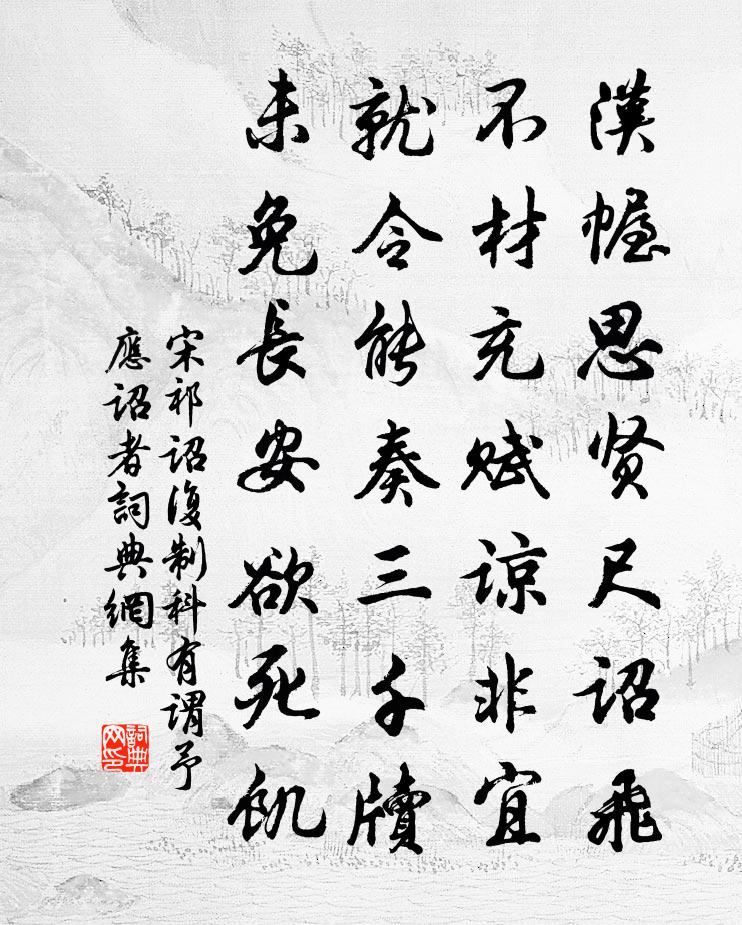 漢幄思贤尺诏飛
不材充赋谅非宜
就令能奏三千牘
未免長安欲死飢
宋祁诏復制科有謂予
應诏者詞典網集
詞典网印